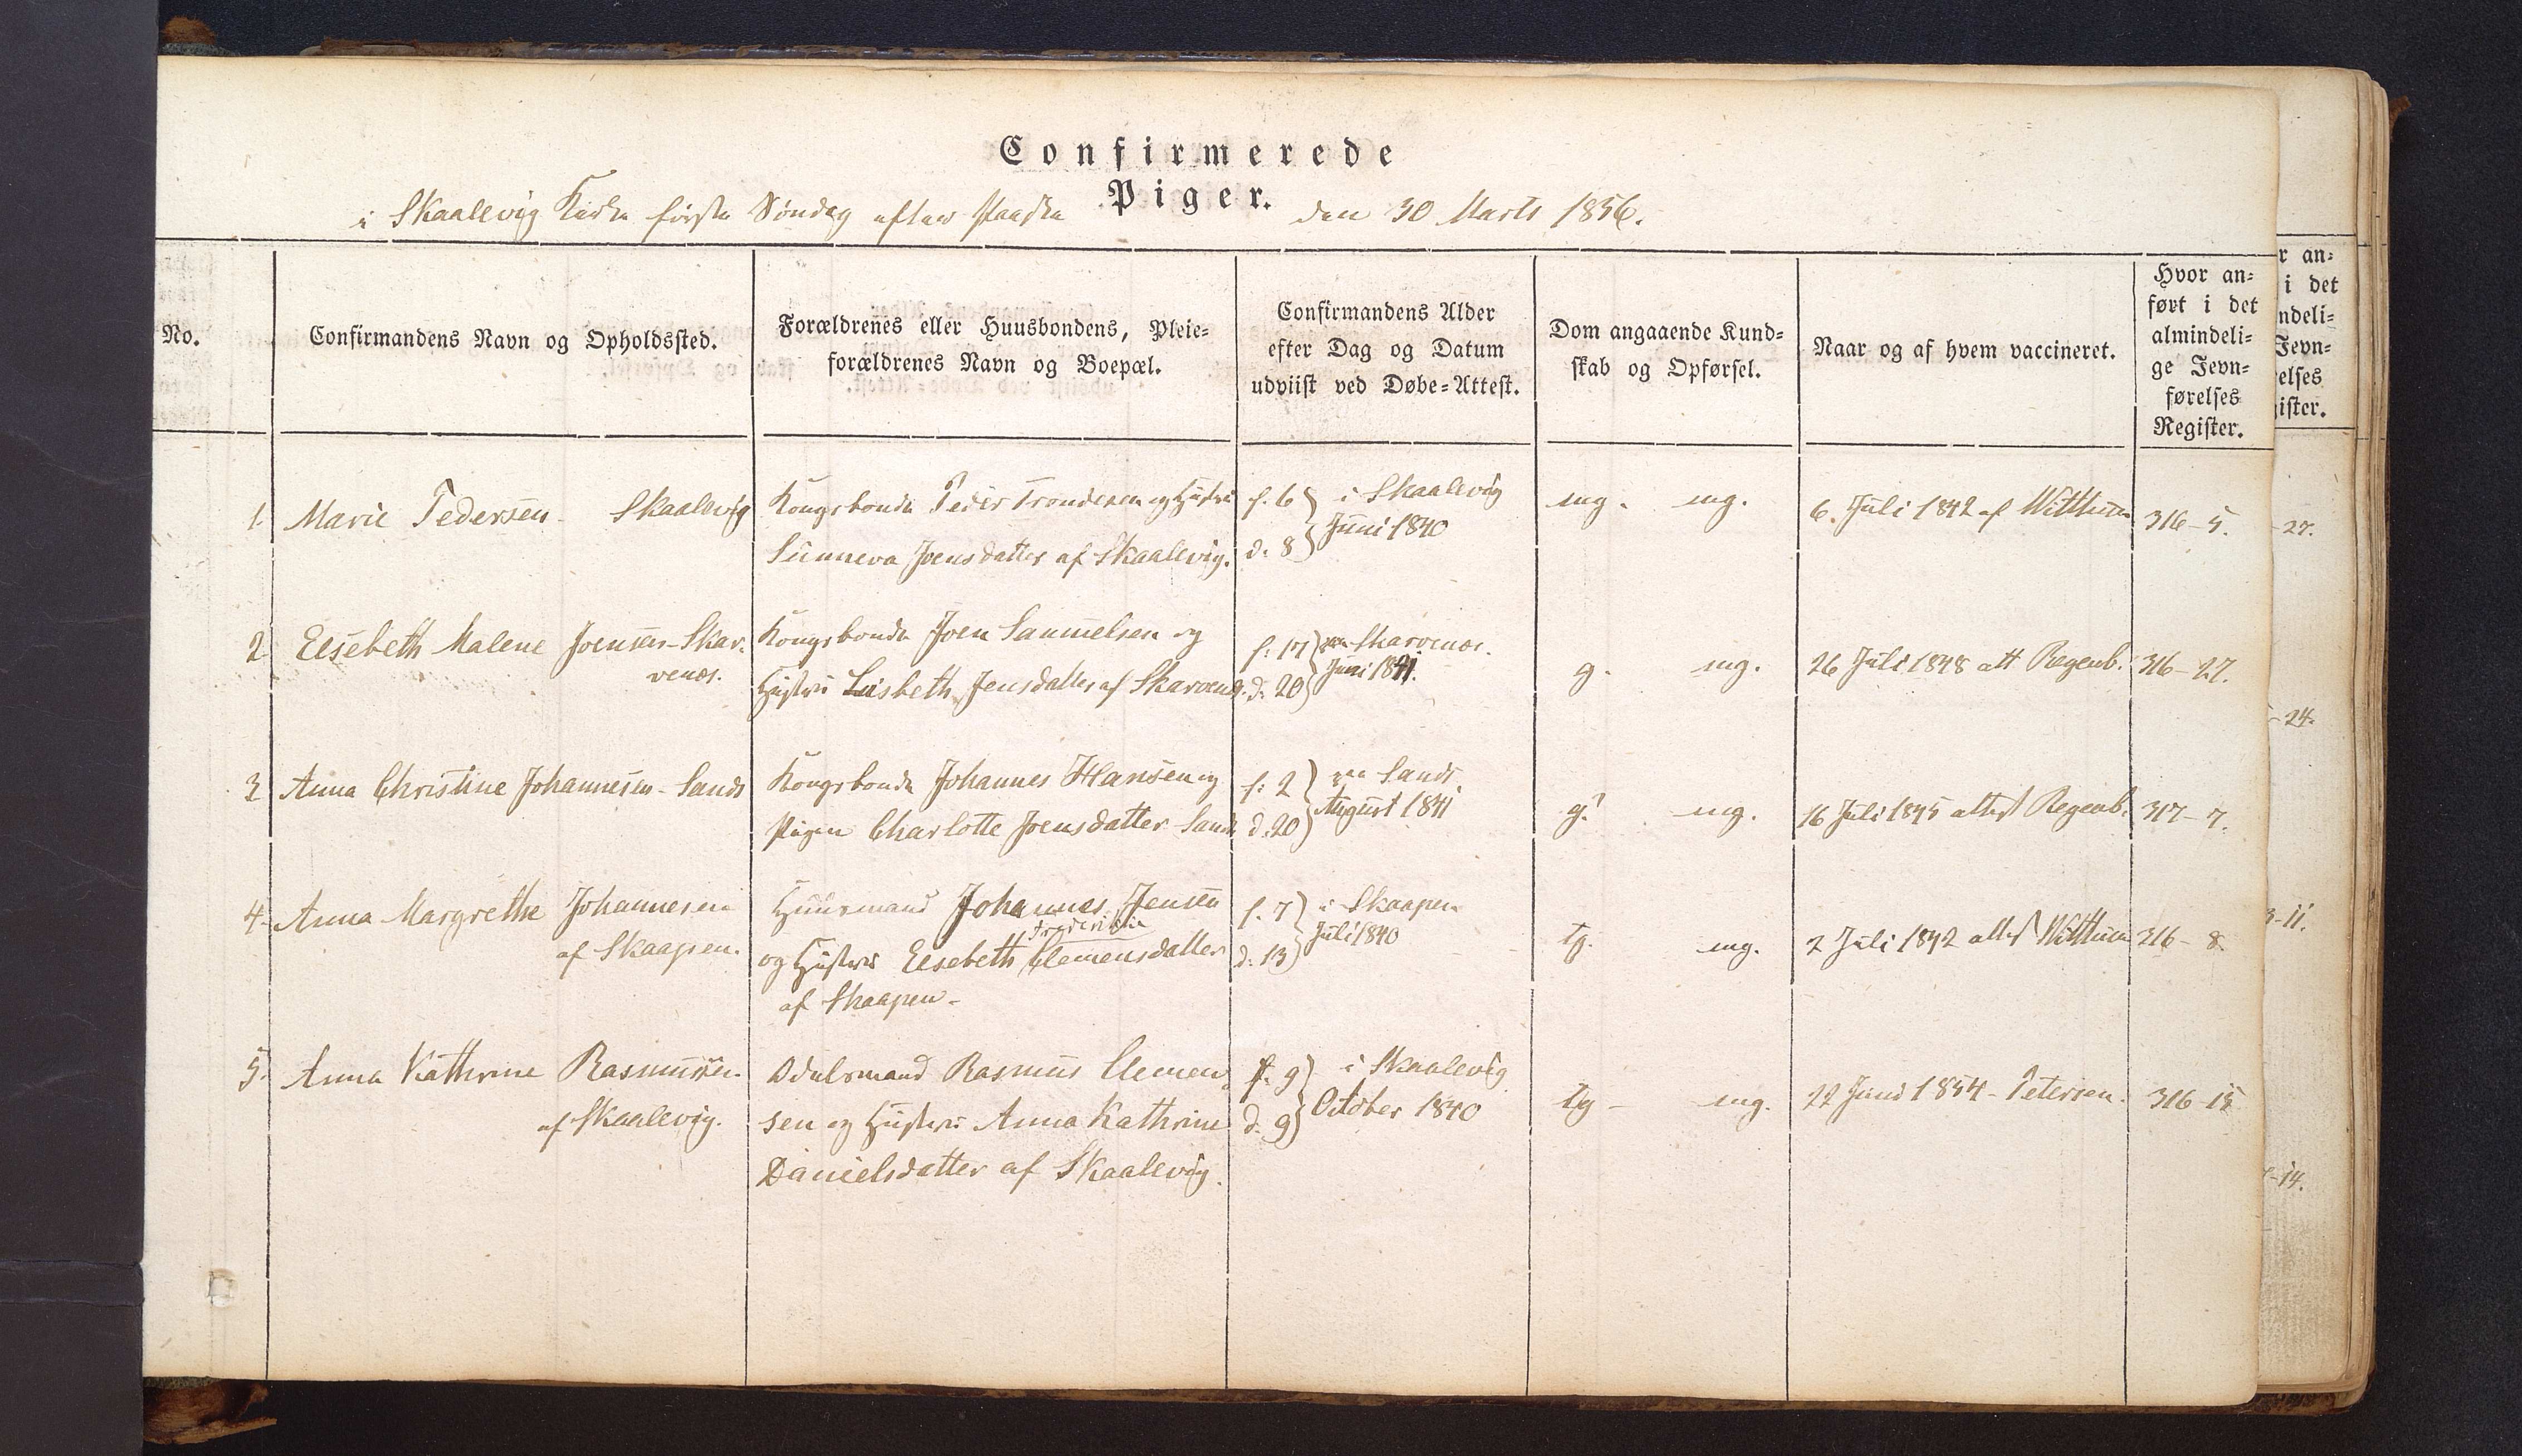 Confirmerede
Piger.
i Skaalevig Kirke første Søndag efter Paaske den 30 Marts 1856.
No.
Confirmandens Navn og Opholdssted.
Forældrenes eller Huusbondens, Pleie=
forældrenes Navn og Boepæl.
Confirmandens Alder
efter Dag og Datum
udviist ved Døbe=Attest.
Dom angaaende Kund=
skab og Opførsel.
Naar og af hvem vaccineret.
Hvor an=
ført i det
almindeli=
ge Jevn=
førelses
Register.
r an=
i det
ndeli=
Jevn=
elses
ister.
1. Marie Pedersen - Skaalevig
Kongsbonde Peder Trondesen og Hustru
Sunneva Joensdatter af Skaalevig.
f. 6 i Skaalevig
d. 8 Juni 1840
mg. mg.
6. Juli 1842 af Witthun
316-5.
-27.
2 Elsebeth Malene Joensen - Skar-
venæs.
Kongsbonde Joen Samuelsen og
Hustru Lisbeth Jensdatter af Skarvenæs.
f: 17 paa Skarvenæs.
d: 20 Juni 1841.
g. mg.
26 Juli 1848 att Regenb.
316-27.
-24.
3 Anna Christine Johannesen - Sands
Kongsbonde Johannes Hansen og
Pigen Charlotte Joensdatter Sand
f: 2 paa Sands
d. 20 August 1841
g? mg.
16 Juli 1845 attest Regenb.
317-7.
4. Anna Margrethe Johannesen
af Skaapen.
Huusmand Johannes Jensen
Frederikke
og Hustru Elsebeth Clemensdatter
af Skaapen -
f. 7 i Skaapen
d. 13 Juli 1840
tg. mg.
2 Juli 1842 attest Witthun
316-8.
3-11.
5. Anna Kathrine Rasmussen.
af Skaalevig.
Odelsmand Rasmus Clemen
sen og Hustru Anna Kathrine
Danielsdatter af Skaalevig.
f. 9 i Skaalevig
d. 9 October 1840
tg - mg.
22 Juni 1854 - Petersen.
316-15
-14.